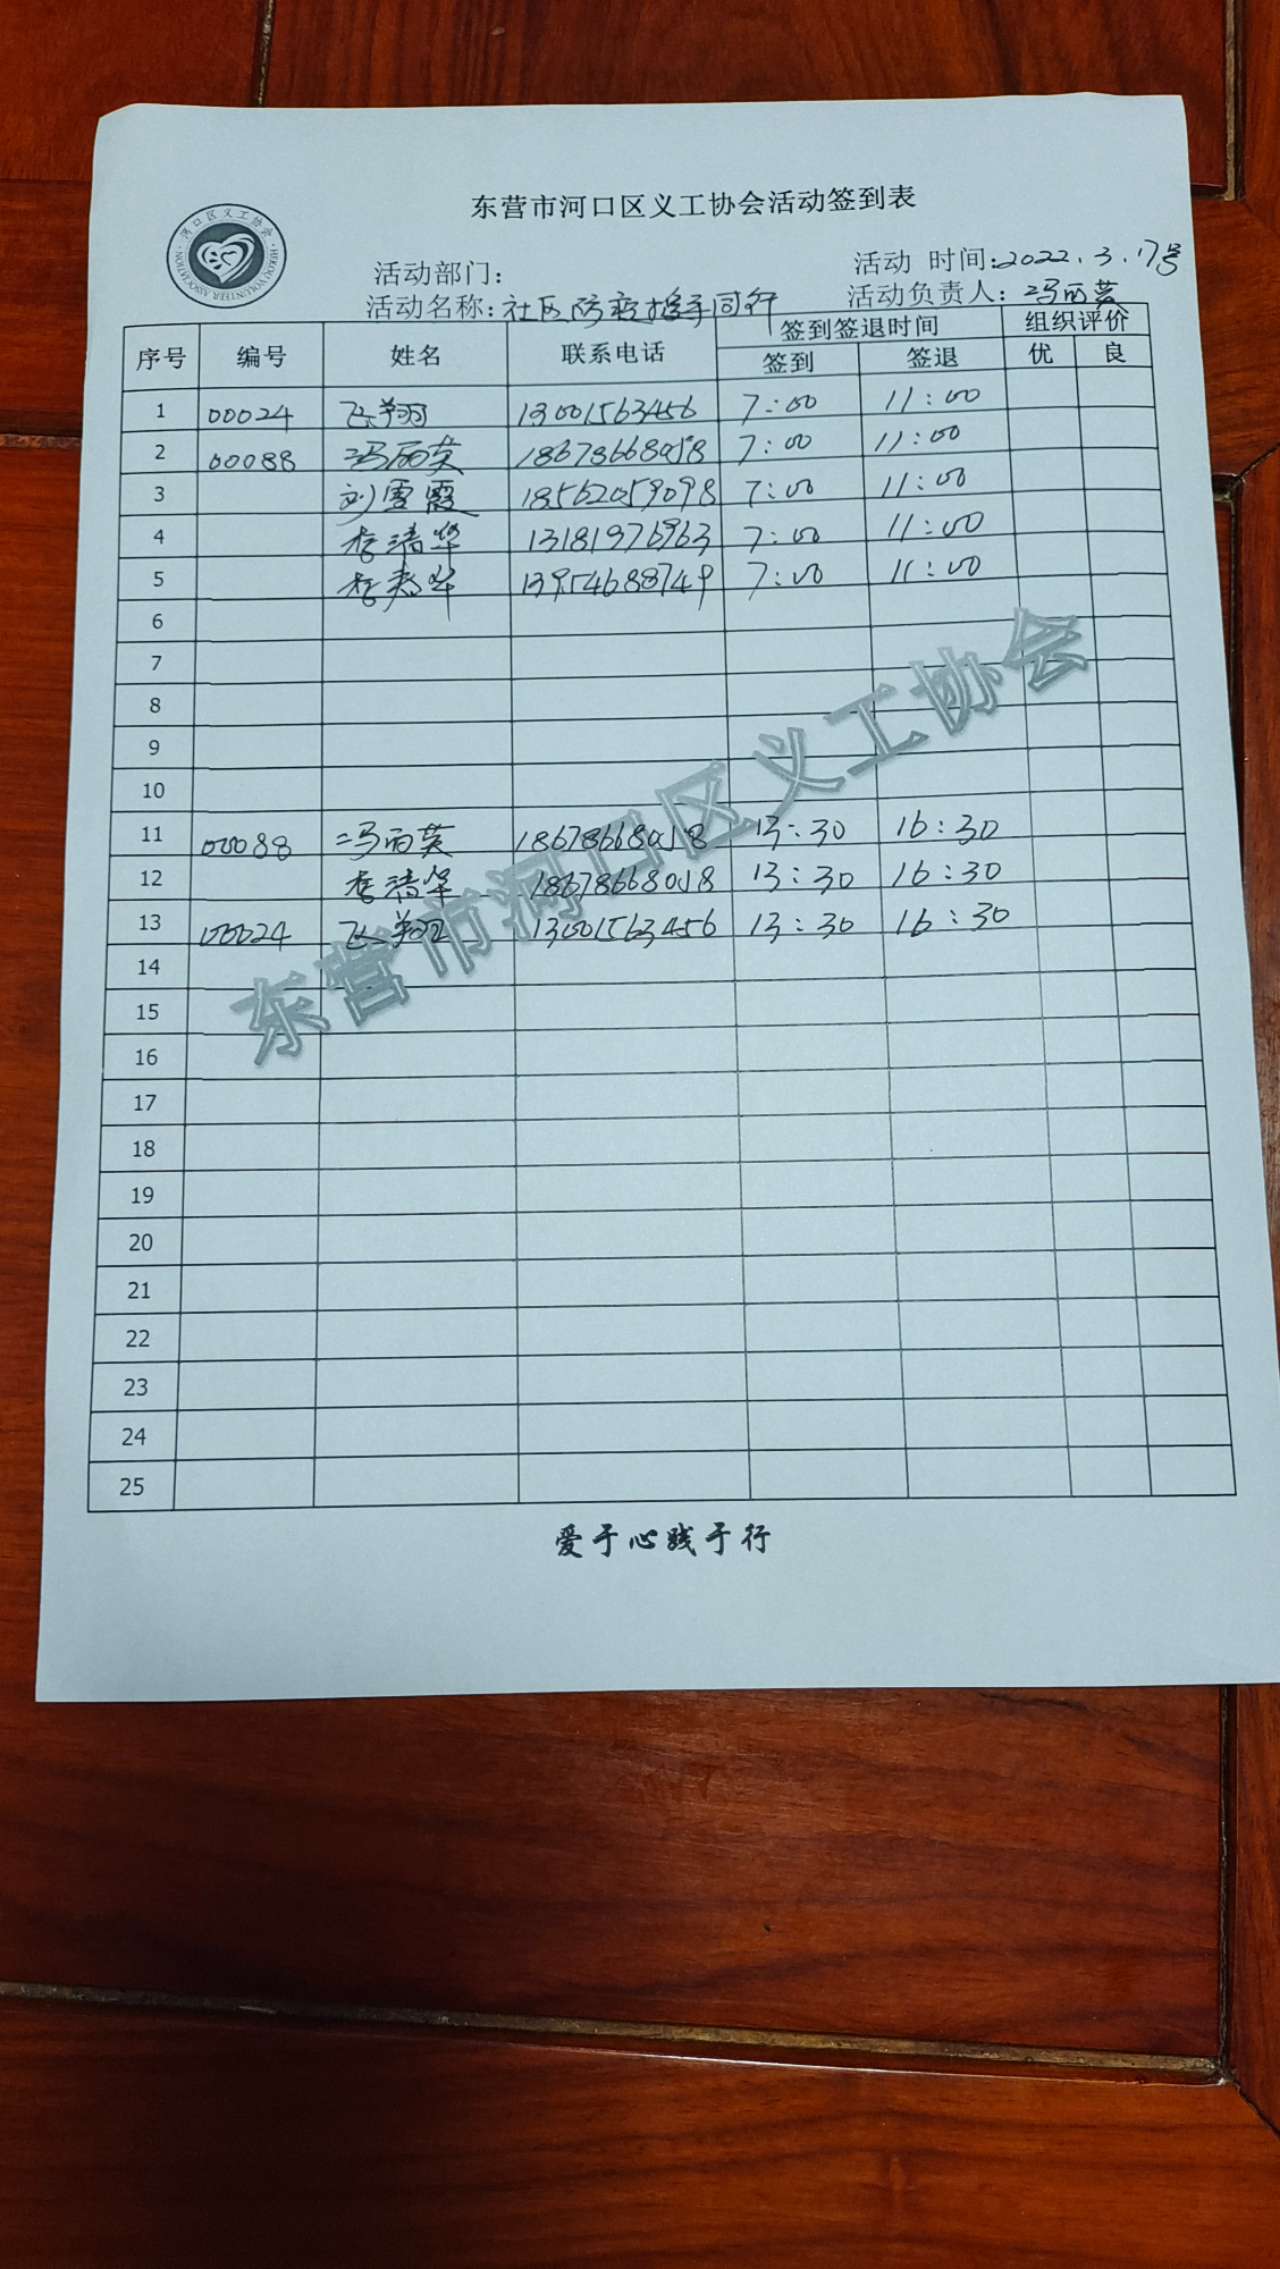 东营市河口区义工协会活动签到表
河口区义工协会
HEKOU VOLUNTEER ASSOCIATION
活动部门: 活动 时间:2022.3.17号
活动名称:社区防疫携手同行 活动负责人:冯丙英
序号 编号 姓名 联系电话 签到签退时间 组织评价
签到 签退 优 良
1 00024 飞翔 13001563456 7:00 11:00
2 00088 冯丙英 18678668058 7:00 11:00
3 刘雪霞 18562059098 7:00 11:00
4 李清华 13181976963 7:00 11:00
5 李 华 13954688749 7:00 11:00
6
7
8
9
10
11 00088 冯丙英 18678668058 13:30 16:30
12 李清华 18678668058 13:30 16:30
13 00024 飞翔 13001563456 13:30 16:30
14
15
16
17
18
19
20
21
22
23
24
25
东营市河口区义工协会
爱于心践于行